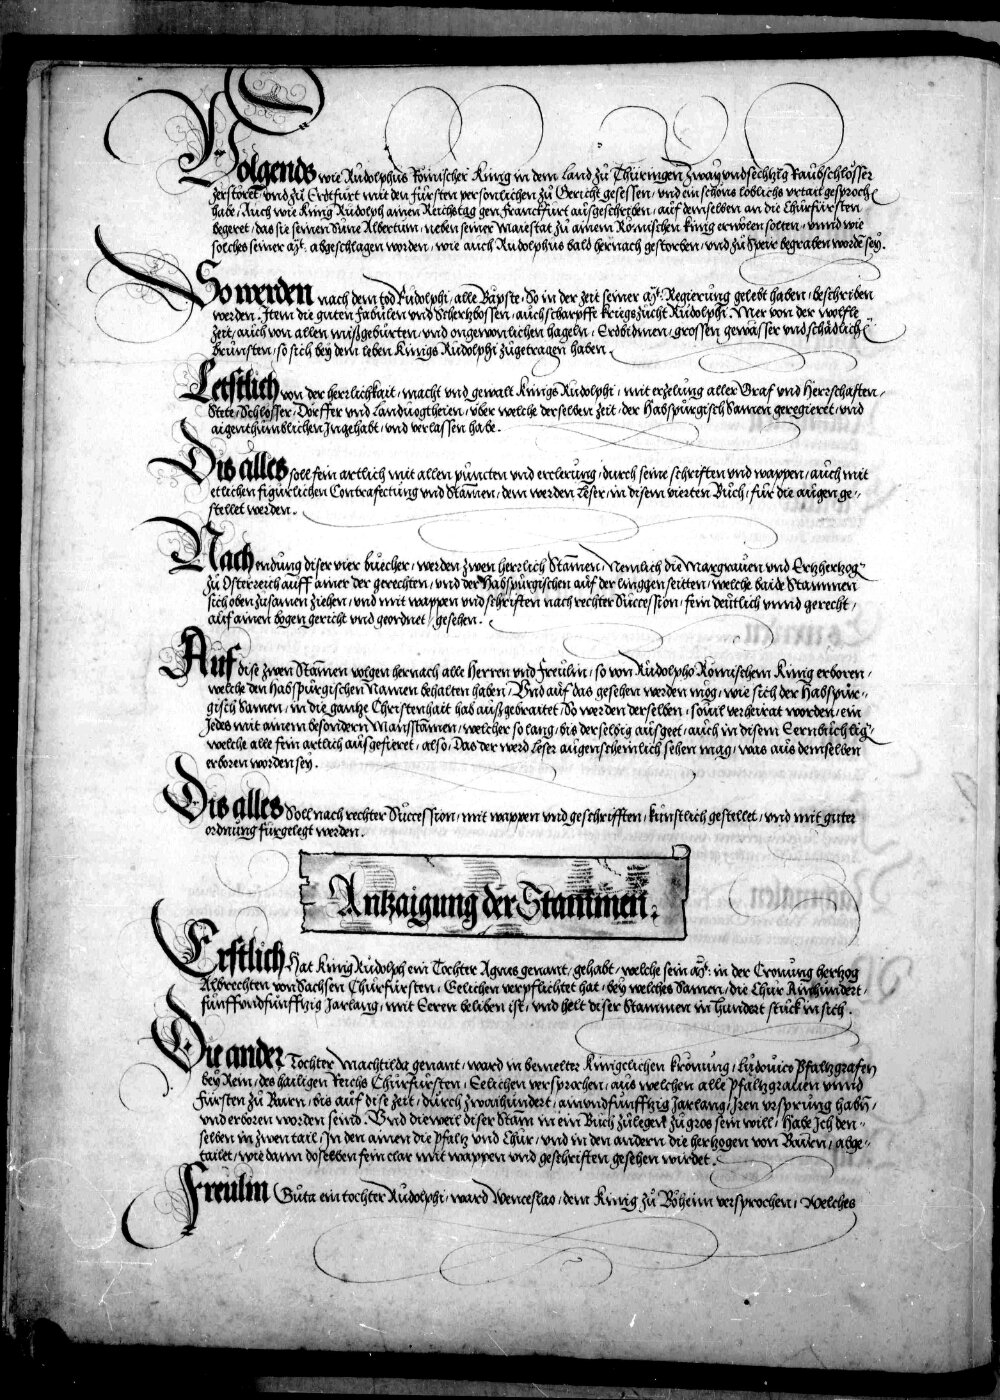 Volgends wie Rudolphus Römischer König in dem Land zu Thüringen zwayundsechtzig Raubschlösser
zerstöret, und zu Erdtfurt mit den fürsten persönlichen zu Gericht gesessen, und ein schöns loblichs urtail gesproch̄
habe, Auch wie König Rudolph ainen Reichstag gen Franckfurt ausgeschriben, auf demselben an die Churfürsten
begeret, das sie seinen Sune Albertum, neben seiner Maiestat zu ainem Römischen König erwölen solten, unnd wie
solches seiner Mt. abgeschlagen worden, wie auch Rudolphus bald hernach gestorben, und zu Speir begraben wordē sey.
So werden nach dem tod Rudolphi, alle Bäpste, So in der zeit seiner Mt. Regierung gelebt haben, beschriben
werden. Item die guten fabulen und Schertzbossen, auch scharpffe kriegszucht Rudolphi. Mer von der wolfle
zeit, auch von allen mißgeburten, und ongewonlichen hageln, Erdbidmen, grossen gewässer und schädlich̄
brunsten, so sich bey dem leben Königs Rudolphi zugetragen haben.
Letstlich von der herrlichkait, macht und gewalt Königs Rudolphi, mit erzelung aller Graf und Herrschaften,
Stete, Schlösser, Dörffer und Landuogtheien, uber welche derselben zeit, der Habspurgisch Samen geregieret, und
aigenthumblichen Ingehabt, und verlassen habe.
Dis alles soll fein artlich mit allen puncten und erclerung, durch seine schriften und wappen, auch mit
etlichen figurlichen Contrafactung und Stāmen, dem werden Leser, in disem vierten Buch, für die augen ge-
stellet werden.
Nach endung diser vier buecher, werden zwen herrlich Stāmen, Nemlich die Margrauen und Ertzhertzog
zu Osterreich auff ainer der gerechten, und der Habspurgischen auf der linggen seitten, welche baide Stammen
sich oben zusamen ziehen, und mit wappen und schriften nach rechter Succession, fein deutlich unnd gerecht,
auf ainen bogen gericht und geordnet, gesehen.
Auf dise zwen Stāmen volgen hernach alle Herren und Freulin, so von Rudolpho Römischem König erboren,
welche den Habspurgischen Namen behalten haben, Und auf das gesehen werden mög, wie sich der Habspur-
gisch Samen, in die gantze Christenhait hab außgebraitet, So werden derselben, souil verheirat worden, ein
Jedes mit ainem besondern Mansstāmen, welcher so lang, bis derselbig ausgeet, auch in disem Eernbuch lig,
welche alle fein artlich ausgefieret, also, Das der werd Leser augenscheinlich sehen mag, was aus demselben
erboren worden sey.
Dis alles Soll nach rechter Succession, mit wappen und geschrifften, künstlich gestellet, und mit guter
ordnung fürgelegt werden.
Antzaigung der Stammen.
Erstlich Hat König Rudolph ein Tochter Agnes genant, gehabt, welche sein Mt. in der Crönung hertzog
Albrechten von Sachsen Churfürsten, Eelichen verpflichtet hat, bey welches Samen, die Chur Ainhundert,
fünffundfünfftzig Jarlang, mit Eeren beliben ist, und helt diser Stammen in hundert stuck in sich.
Die ander Tochter Machtilda genant, ward in bemelter Königclichen krönung, Ludouico Pfaltzgrafen
bey Rein, des hailigen Reichs Churfürsten, Eelichen versprochen, aus welchen alle Pfaltzgrauen unnd
Fürsten zu Bairn, bis auf dise zeit, durch zwaihundert, ainundfünfftzig Jarlang, Iren ursprung habn̄,
und erboren worden seind. Und dieweil diser Stam̄ in ein Buch zulegen zu gros sein will, Habe Ich den-
selben in zwen tail, In den ainen die Pfaltz und Chur, und in den andern die hertzogen von Bairn, abge-
tailet, wie dann doselben fein clar mit wappen und geschriften gesehen wurdet.
Freulin Guta ein tochter Rudolphi, ward Wenceslao, dem König zu Böheim versprochen, Welches